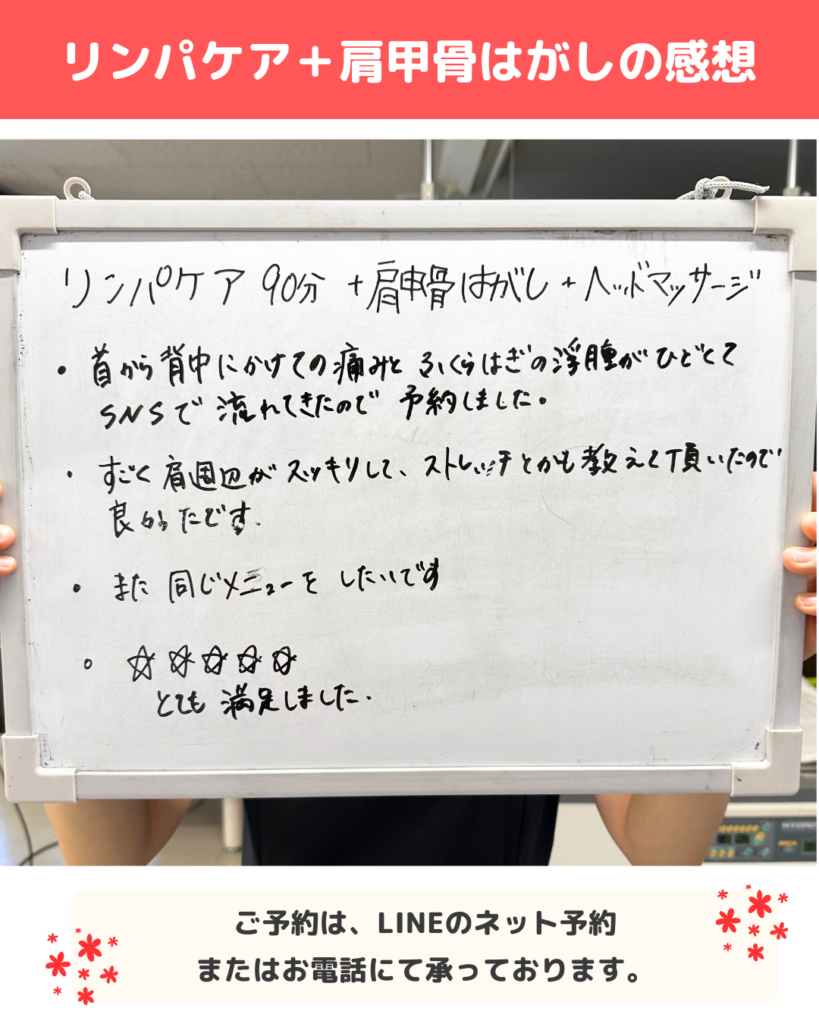 リンパケア＋肩甲骨はがしの感想
リンパケア 90分 + 肩甲骨はがし + ヘッドマッサージ
・首から背中にかけての痛みと ふくらはぎの浮腫がひどくて
SNSで 流れてきたので 予約しました。
・すごく肩周辺がスッキリして、ストレッチとかも教えて頂いたので
良かったです.
・また 同じメニューを したいです
・☆☆☆☆☆
とても 満足しました.
ご予約は、LINEのネット予約
またはお電話にて承っております。